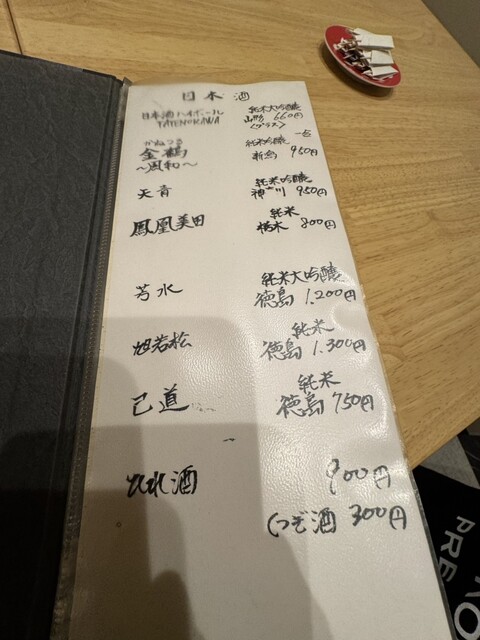 日本酒
日本酒ハイボール 純米大吟醸
TATENOKAWA 山形 660円
(グラス)
一合
かねつる 純米吟醸
金鶴 新潟 950円
〜風和〜
純米吟醸
天青 神奈川 950円
純米
鳳凰美田 栃木 800円
純米大吟醸
芳水 徳島 1,200円
純米
旭若松 徳島 1,300円
純米
己道 徳島 750円
ひれ酒 900円
(つぎ酒 300円
PRE